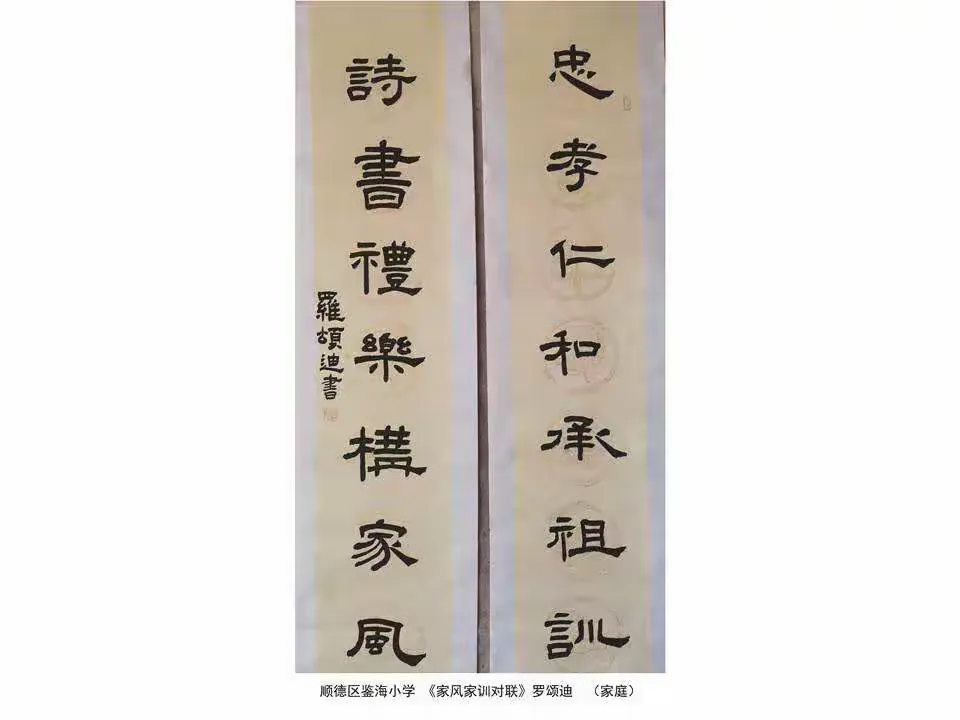 忠孝仁和承祖訓
詩書禮樂構家風
羅頌迪書
顺德区鉴海小学 《家风家训对联》罗颂迪 （家庭）